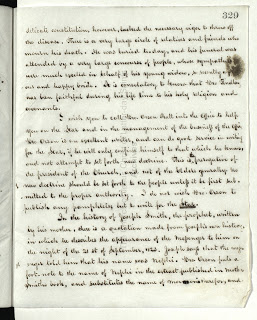 329
delicate constitution, however, lacked the necessary vigor to throw off
the disease. There is a very large circle of relatives and friends who
mourn his death. He was buried to-day, and his funeral was
attended by a very large concourse of people, whose sympathies
were much excited in behalf of his young widow, so recently a
and happy bride. It is consolatory to know that he
has been faithful during his life time to his holy religion and
covenants.
I wish you to call Bro. Orson Pratt into the Office to help
you on the Star and in the management of the business of the office.
Bro. Orson is an excellent writer, and can do good service in writing
for the Star, if he will only confine himself to that which he knows,
and not attempt to set forth new doctrine. This is prerogative of
the president of the Church, and not of the Elders generally. No
new doctrine should be set forth to the people until it be first sub-
mitted to the proper authority. I do not wish Bro. Orson to
publish any pamphlets, but to write for the Star.
In the history of Joseph Smith, the prophet, written
by his mother, there is a quotation made from Joseph's own history,
in which he describes the appearance of the messenger to him on
the night of the 21st of September, 1823. Joseph says that the mes-
senger told him that his name was Nephi. Bro. Orson puts a
foot-note to the name of Nephi in the extract published in mother
Smith's book, and substitutes the name of Moroni therefor, and